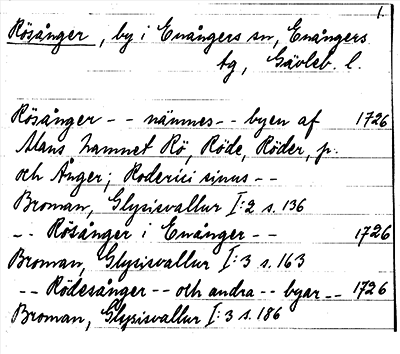 1.
Rösånger, by i Enångers sn, Enångers
tg, Gävleb. l.
Rösånger - - nännes - - byen af 1726
Mans hamnet Rö, Röde, Röder, p.
och Ånger; Roderici sinus - -
Broman, Glysisvallur I:2 s. 136
- - Rösånger i Enånger - - 1726
Broman, Glysisvallur I:3 s. 163
- - Rödesånger - - och andra - - byar - - 1726
Broman, Glysisvallur I:3 s. 186